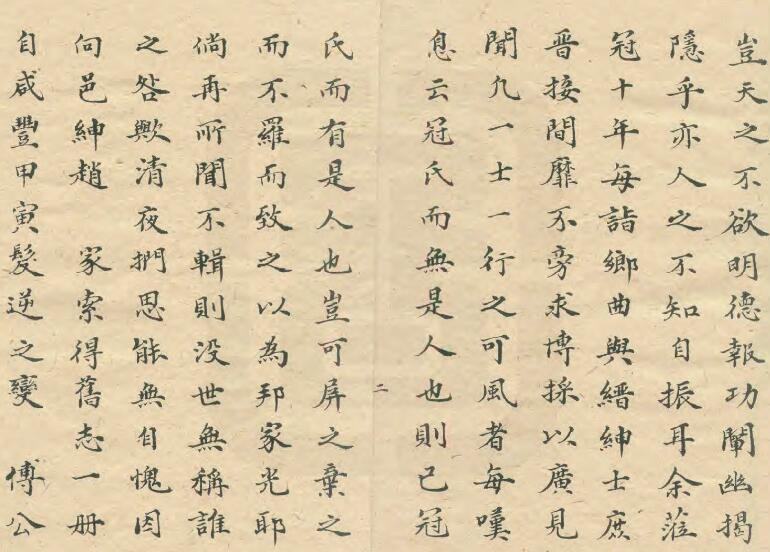 豈天之不欲明德報功闡幽揭
隱乎亦人之不知自振耳余蒞
冠十年每詣鄉曲與縉紳士庶
晋接間靡不旁求博採以廣見
聞凡一士一行之可風者每嘆
息云冠氏而無是人也則已冠
二
氏而有是人也豈可屏之棄之
而不羅而致之以為邦家光耶
倘再所聞不輯則没世無稱誰
之咎歟清夜捫思能無自愧因
向邑紳趙 家索得舊志一册
自咸豐甲寅髮逆之變 傅公